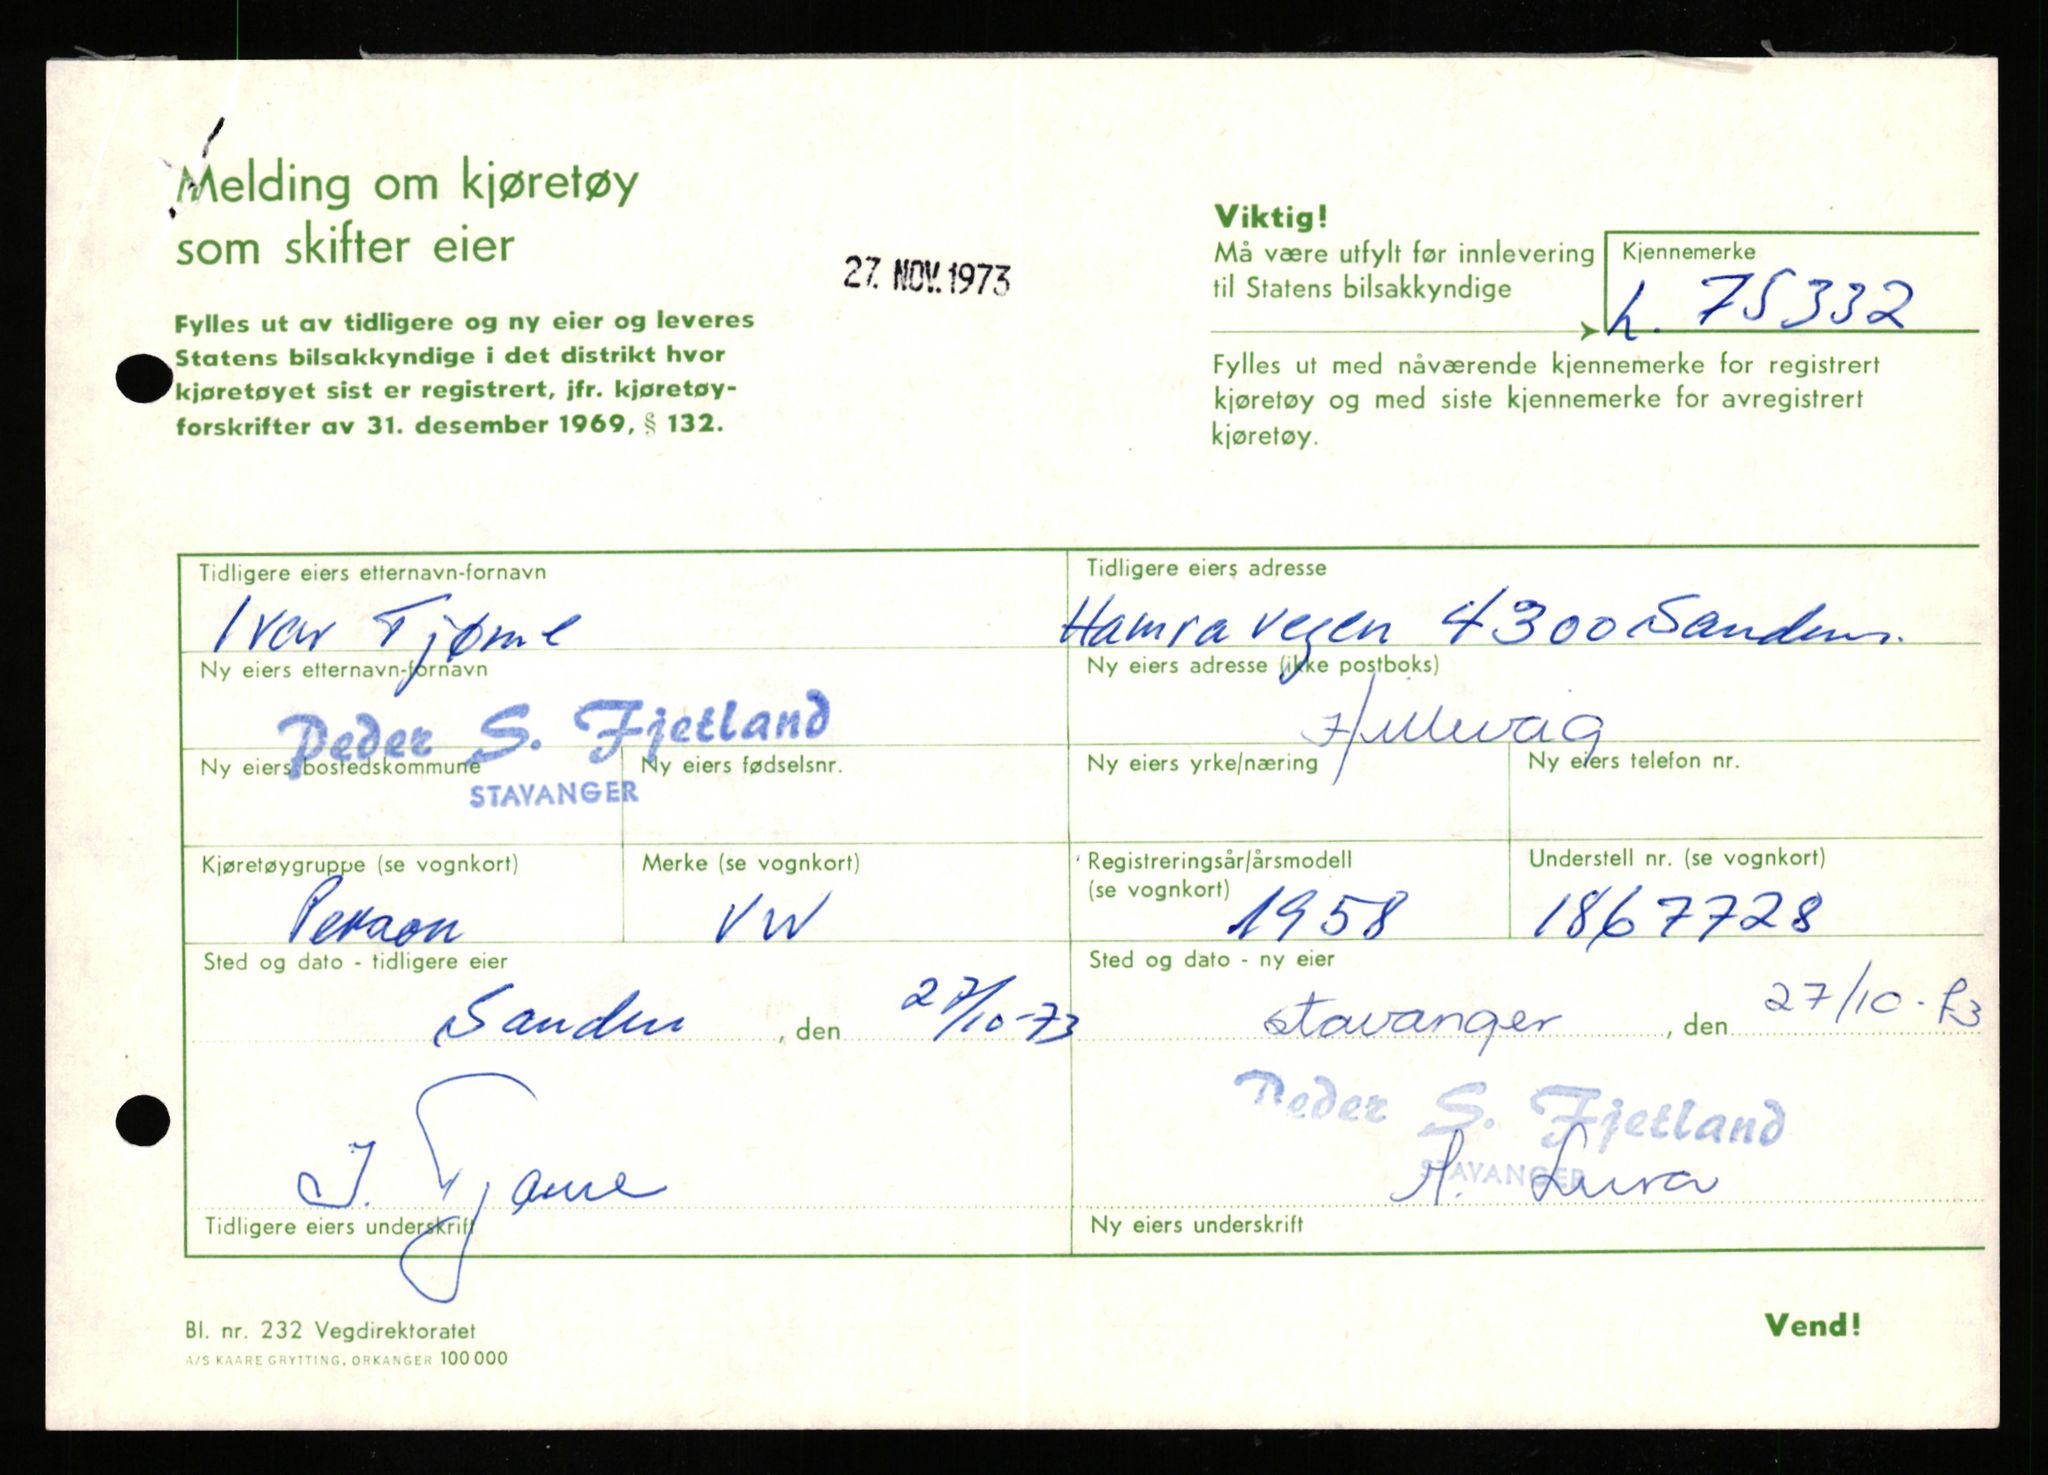 Melding om kjøretøy
som skifter eier
27. NOV. 1973
Fylles ut av tidligere og ny eier og leveres
Statens bilsakkyndige i det distrikt hvor
kjøretøyet sist er registrert, jfr. kjøretøy-
forskrifter av 31. desember 1969, § 132.
Viktig!
Må være utfylt før innlevering
til Statens bilsakkyndige
Kjennemerke
L. 75332
Fylles ut med nåværende kjennemerke for registrert
kjøretøy og med siste kjennemerke for avregistrert
kjøretøy.
Tidligere eiers etternavn-fornavn
Ivar Tjøme
Tidligere eiers adresse
Hamravegen 4300 Sandnes.
Ny eiers etternavn-fornavn
Peder S. Fjetland
STAVANGER
Ny eiers adresse (ikke postboks)
Hillevåg
Ny eiers bostedskommune
Ny eiers fødselsnr.
Ny eiers yrke/næring
Ny eiers telefon nr.
Kjøretøygruppe (se vognkort)
Person
Merke (se vognkort)
VW
Registreringsår/årsmodell
(se vognkort)
1958
Understell nr. (se vognkort)
1867728
Sted og dato - tidligere eier
Sandnes, den 27/10-73
Sted og dato - ny eier
Stavanger, den 27/10-73
I. Tjøme
Tidligere eiers underskrift
Peder S. Fjetland
STAVANGER
A. Lura
Ny eiers underskrift
Bl. nr. 232 Vegdirektoratet
A/S KAARE GRYTTING, ORKANGER 100 000
Vend!